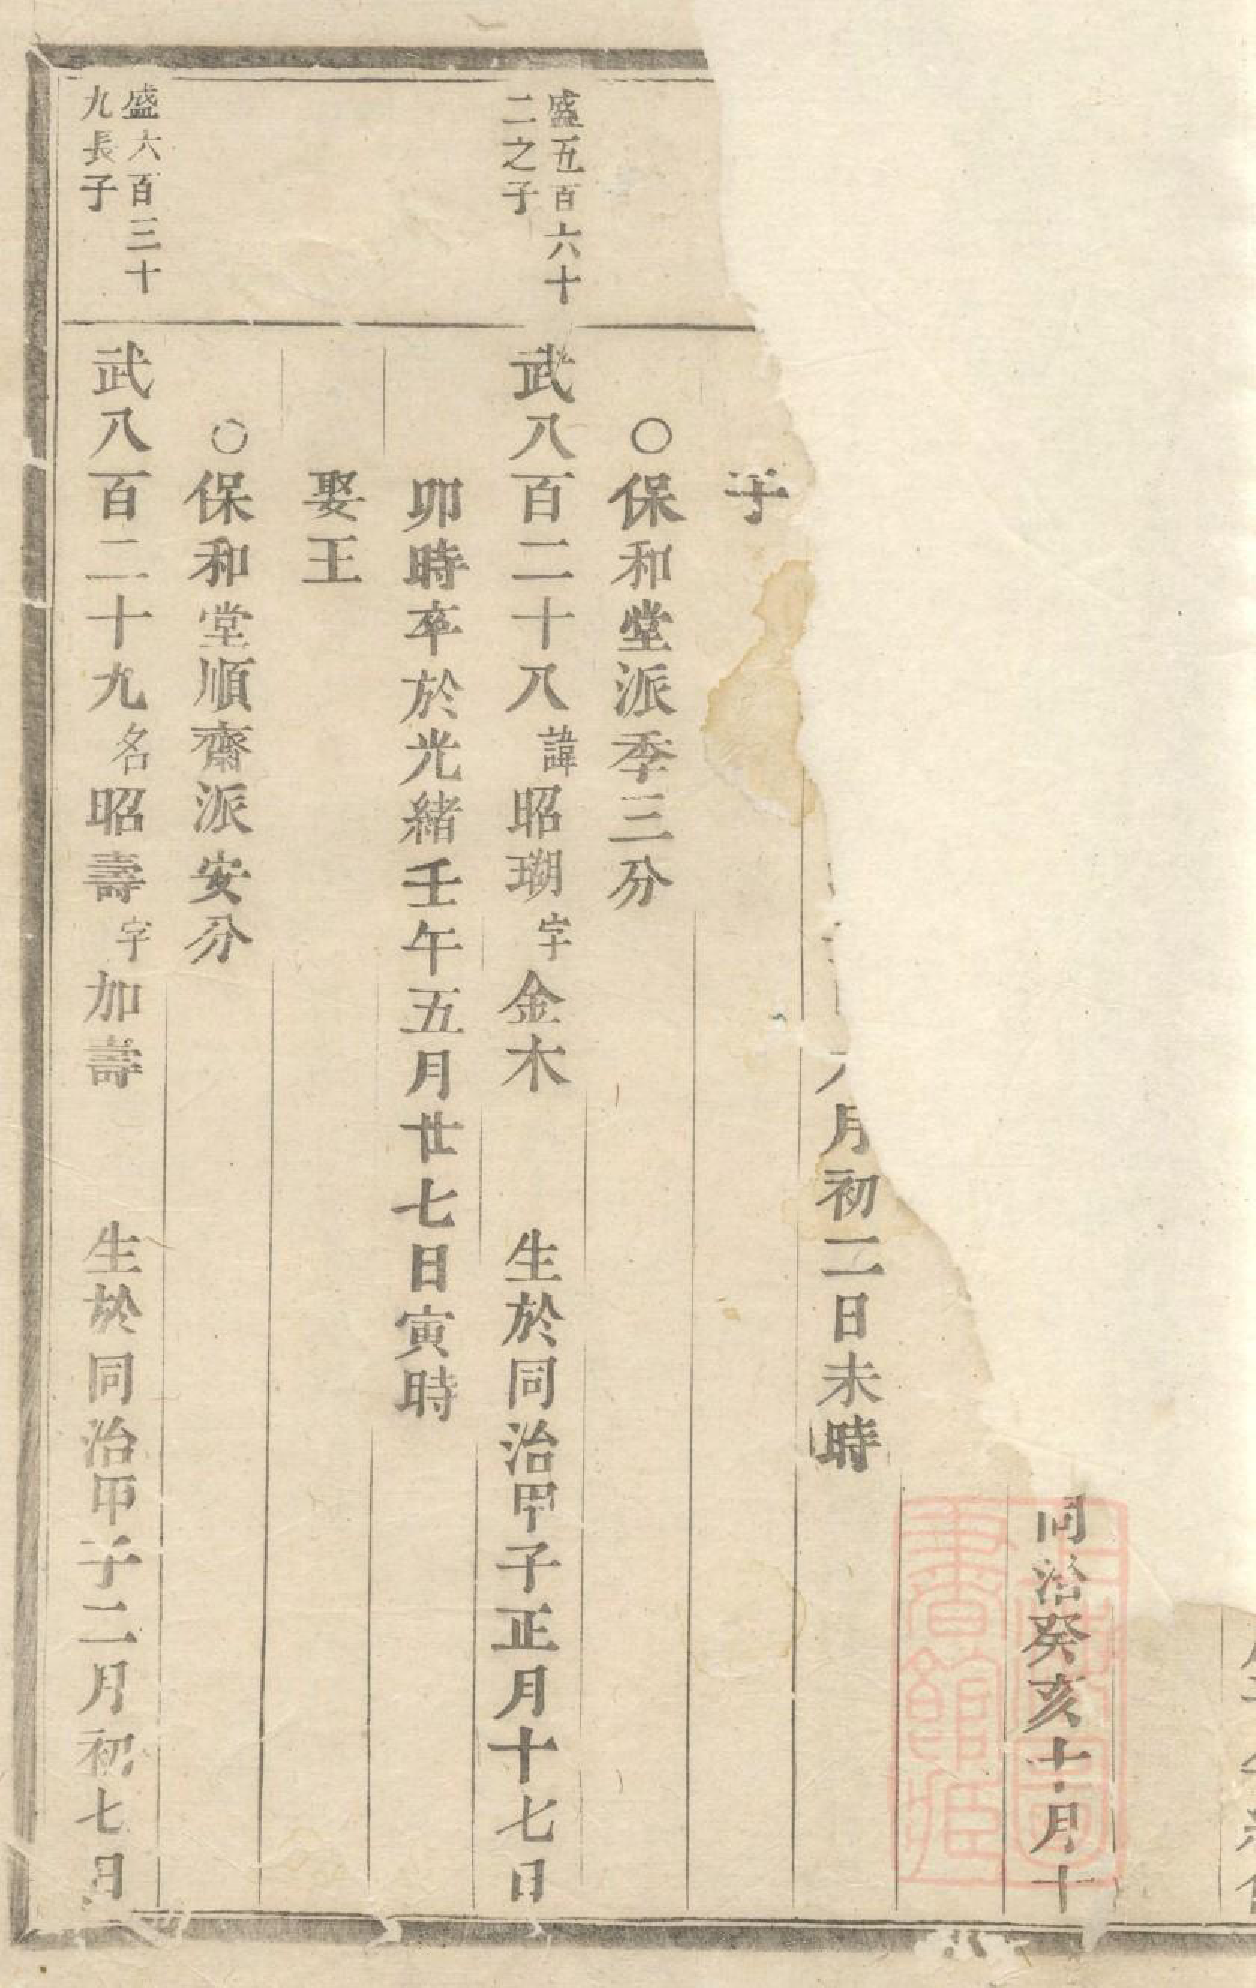 同治癸亥十月十
月初二日未時
子
○保和堂派季三分
盛五百六十
二之子
武八百二十八諱昭瑚字金木 生於同治甲子正月十七日
卯時卒於光緒壬午五月廿七日寅時
娶王
○保和堂順齋派安分
盛六百三十
九長子
武八百二十九名昭壽字加壽 生於同治甲子二月初七日